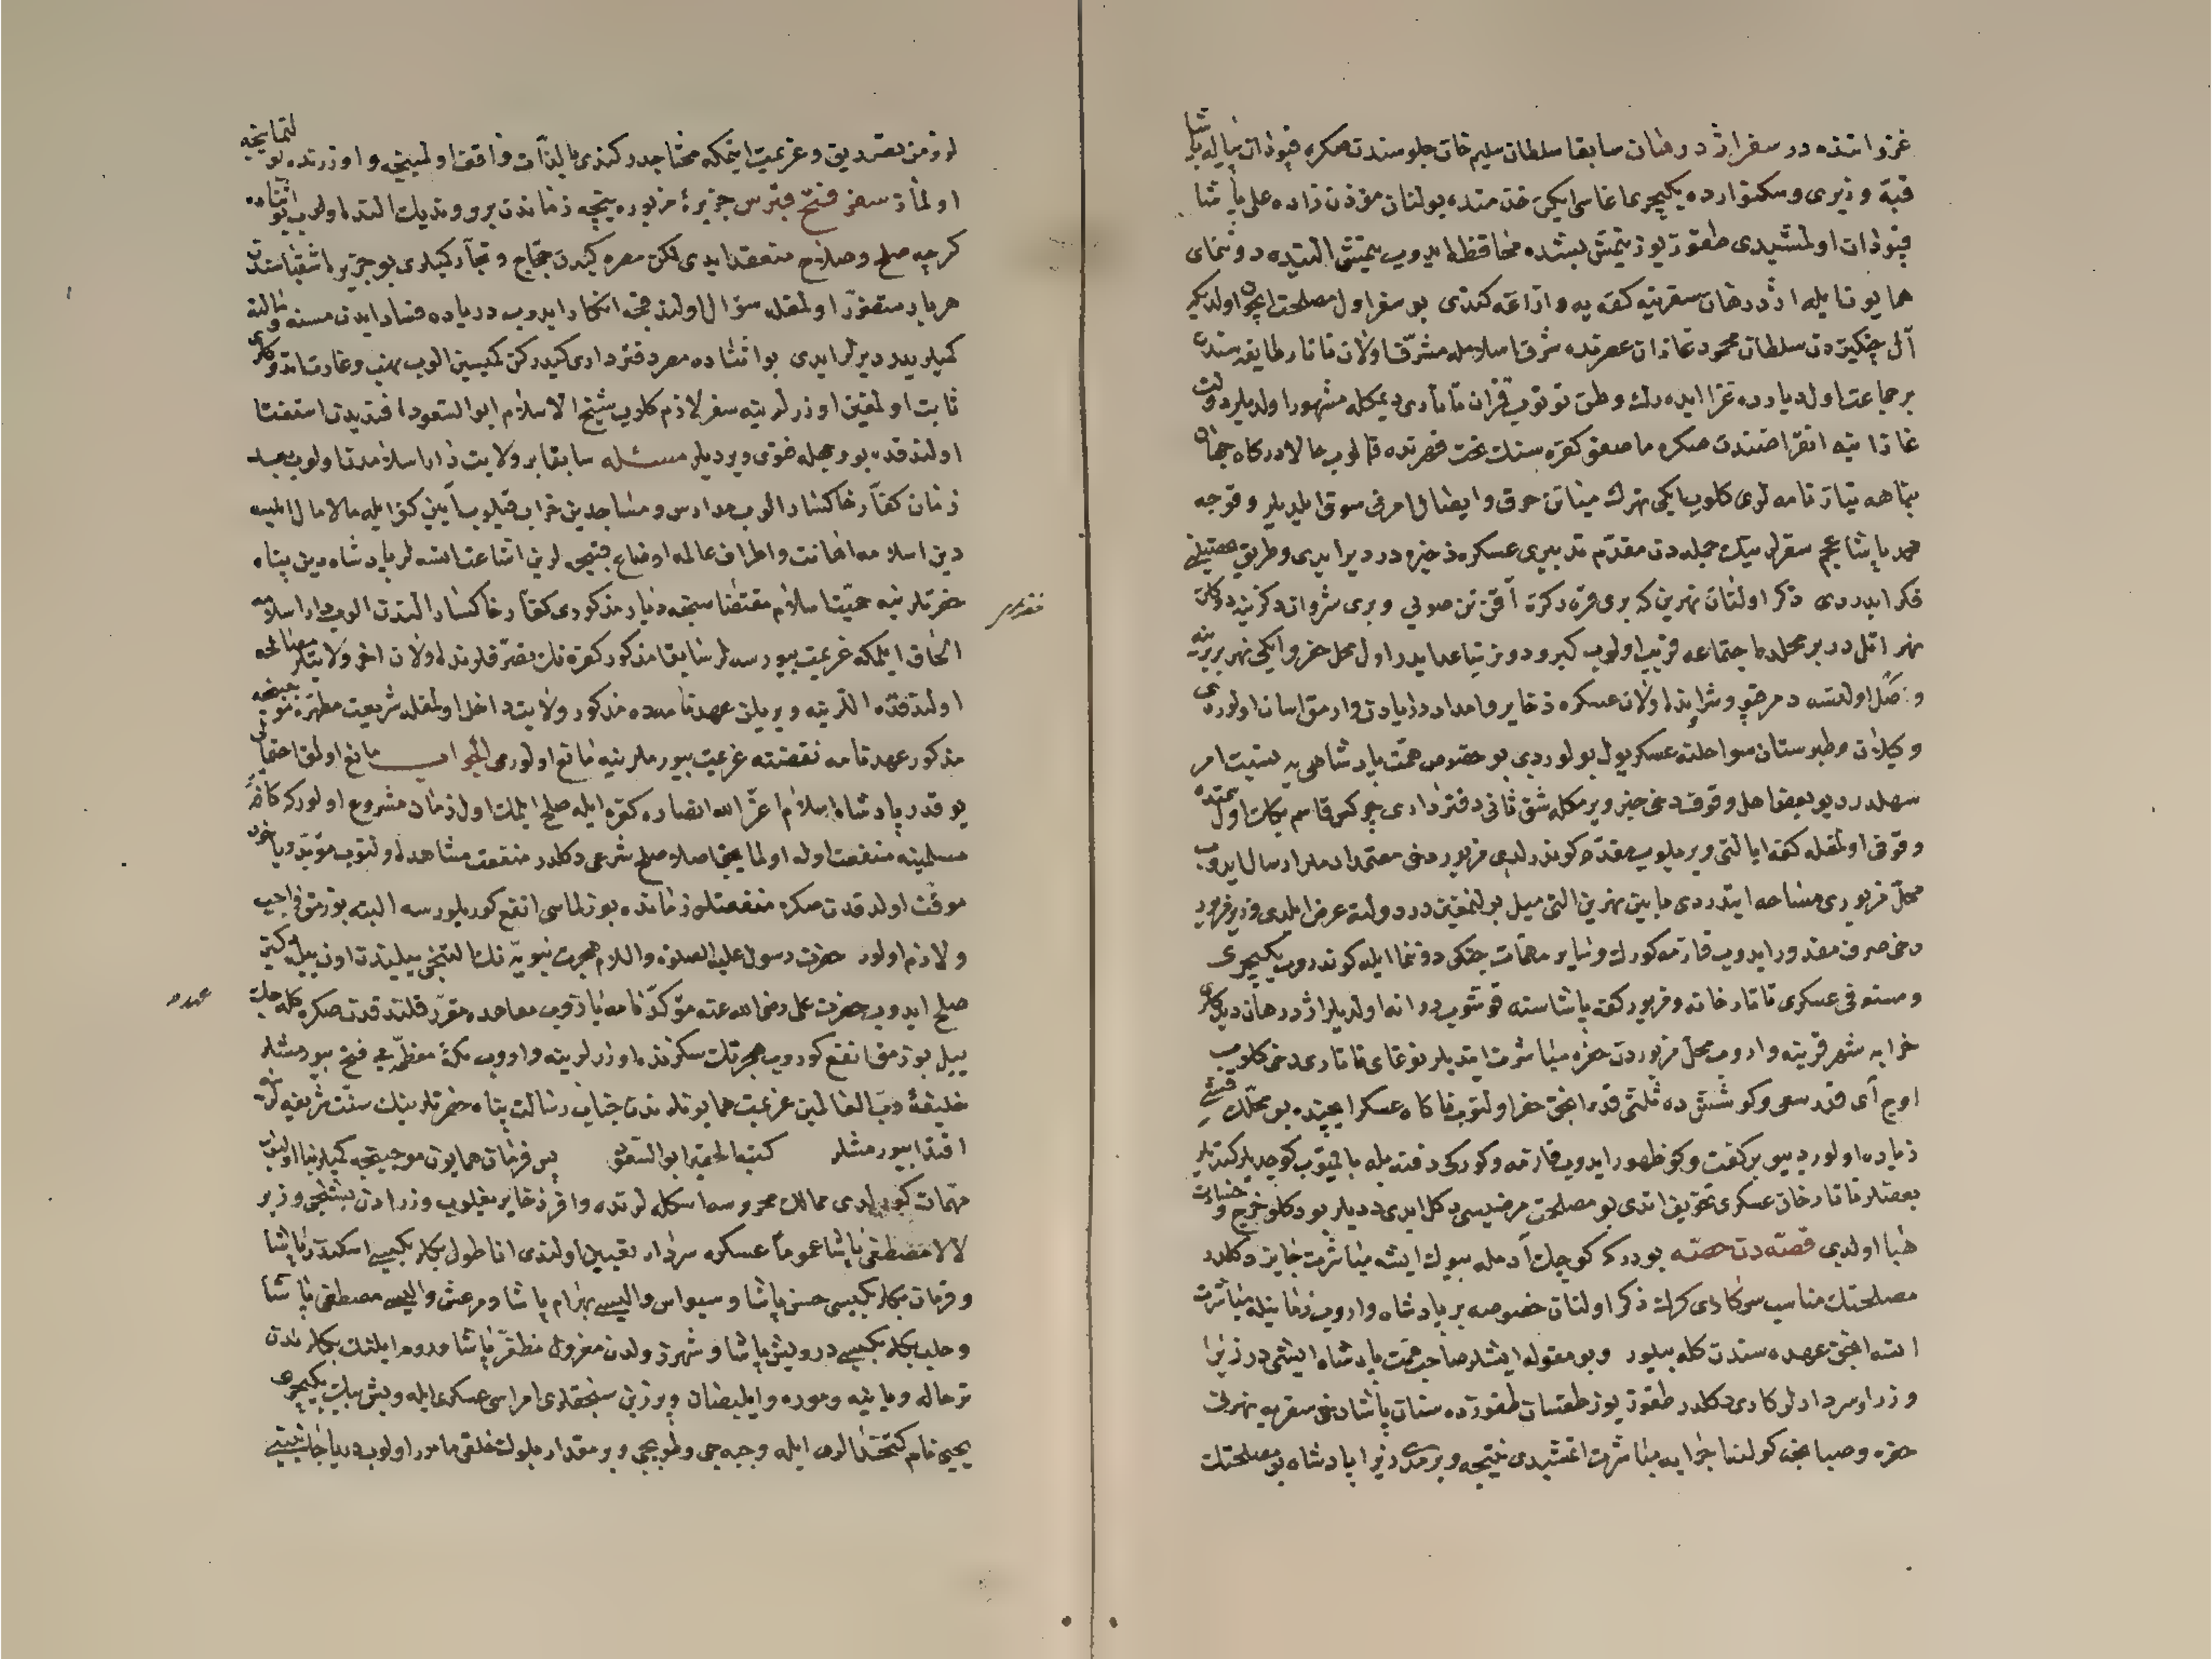 غزا اتنده در سفر اژدرهان سابقا سلطان سليم خان جلوسندن صكره قپودان پياله پاشا
قبه وزيرى وسكتوارده يكيچرى اغاسى ايكن خدمتده بولنان مؤذن زاده على پاشا
قپودان اولمشيدى طقوز يوز يتمش بشده محافظه ايدوب يتمش التيده دونماى
همايون ايله اژدرخان سفرينه كفه يه وازاغه كتدى بو سفر اول مصلحت ايچون اولديكه
آل چنكيزدن سلطان محمود غازان عصرنده شرف اسلامله مشرف اولان تاتار طايفه سندن
بر جماعت اول ديارده غزا ايده رك وطن توتوب قزان تاتارى ديمكله مشهور اولديلر دولت
غازانيه انقراضندن صكره ماصقو كفره سنك تحت قهرنده قالوب حالا دركاه جهان
پناهه نياز نامه لرى كلوب ايكى نهرك ميانن حرق وايصال امرنى سوق ايلديلر وقوجه
محمد پاشا عجم سفرلرينك جمله دن مقدم تدبيرى عسكره ذخيره در ديرايدى وطريق تحصيلنى
فكر ايدردى ذكر اولنان نهرين كه برى قره دكزه آقن تن صويى وبرى شروان دكزينه دوكلن
نهر اتل در بر محلده اجتماعه قريب اولوب كيرو دونر تباعد ايدر اول محل حفر وايكى نهر بربرينه
وصل اولنسه دمرقپو وشراينده اولان عسكره ذخاير وامداد دريادن وارمق اسان اولوردى
وكيلان وطبرستان سواحلنه عسكر يول بولوردى بو خصوص همت پادشاهى يه نسبت امر
سهلدر ديو بعض اهل وقوف دخى خبر ويرمكله شق ثانى دفتردارى چركس قاسم بك اول سمتده
وقوفى اولمغله كفه ايالتى ويريلوب مقدم كوندرلدى مزبور دخى معتمد ادملر ارسال ايدوب
محل مزبورى مساحه ايتدردى مابين نهرين التى ميل بولنمغين در دولته عرض ايلدى وزير مزبور
دخى صرف مقدور ايدوب قازمه كورك وساير مهمات جنكى دونما ايله كوندروب يكيچرى
ومستوفى عسكرى تاتار خانه ومزبور كفه پاشاسنه قوشوب روانه اولديلر اژدرهان ديدكلرى
خرابه شهر قربنه واروب محل مزبوردن حفره مباشرت ايتديلر نوغاى تاتارى دخى كلوب
اوچ آى قدر سعى وكوششده ثلثى قدر انجق حفر اولنوب ناكاه عسكر ايچنده بو محلك قيشى
زياده اولور ديو بر كفت وكو ظهور ايدوب قازمه وكوركى دفينه يله باليتوب كوچديلر كتديلر
بعضلر تاتار خان عسكرى تخويف اتدى بو مصلحت مرضيسى دكل ايدى ديديلر بو دكلو خرج وخسارت
هبا اولدى قصه دن حصه بودر كه كوچك آدمله بيوك ايشه مباشرت جايز دكلدر
مصلحتك مناسب سركارى كرك ذكر اولنان خصوصه بر پادشاه واروب ذاتيله مباشرت
اتسه انجق عهده سندن كله بيلور وبو مقوله ايشلر صاحب همت پادشاه ايشى در زيرا
وزرا وسردارلر كارى دكلدر طقوز يوز طقسان طقوزده سنان پاشا دخى سقريه نهرنى
حفره وصبانجه كولنه اجرايه مباشرت اتمشيدى نتيجه ويرمدى زيرا پادشاه بو مصلحتك
لزومن تصديق وعزيمت ايتمكه محتاجدر كندى بالذات واقف اولمينجه واوزرنده بو لنماينجه
اولماز سفر فتح قبرس جزيرۀ مزبوره نيچه زماندن برو ونديك النده اولوب بو اثناده
كرچه صلح وصلاح منعقد ايدى لكن مصره كيدن حجاج وتجار كميلرى بو جزيره اشقياسندن
هر بار متضرر اولمغله سؤال اولندقجه انكار ايدوب درياده فساد ايدن مسنه ومالته
كميلريدر ديرلر ايدى بو اثناده مصر دفتردارى كيدركن كميسين الوب نهب وغارت اتدوكلرى
ثابت اولمغين اوزرلرينه سفر لازم كلوب شيخ الاسلام ابو السعود افنديدن استفتا
اولندقده بو وجهله فتوى ويرديلر مسئله سابقا بر ولايت دار اسلامدن اولوب بعد
زمان كفار خاكسار الوب مدارس ومساجدين خراب قيلوب آيين كفرايله مالامال ايلسه
دين اسلامه اهانت واطراف عالمه اوضاع قبيحه لرين اشاعت اتسه لر پادشاه دين پناه
حضرتلرينه حميت اسلام مقتضاسنجه ديار مذكورى كفار خاكسار الندن الوب دار اسلامه
الحاق ايلمكه عزيمت بيورسه لر سابقا مذكور كفره نك تصرفلرنده اولان اخر ولايتلر مصالحه
اولندقده اللرينه ويريلن عهدنامه ده مذكور ولايت داخل اولمغله شريعت مطهره موجبنجه
مذكور عهدنامه نقضنه عزيمت بيورملرينه مانع اولورمى الجواب مانع اولق احتمالى
يوقدر پادشاه اسلام عز الله انصاره كفره ايله صلح ايلمك اول زمان مشروع اولور كه كافه
مسلمينه منفعت اوله اولمايجق اصلا صلح شرعى دكلدر منفعت مشاهده اولنوب مؤبد ويا خود
موقت اولدقدن صكره منفعتلو زمانده بوزلماسى انفع كوريلورسه البته بوزمق واجب
ولازم اولور حضرت رسول عليه الصلوة والسلام هجرت نبويه نك التنجى ييلندن اون ييله دكين
صلح ايدوب حضرت على رضى الله عنه مؤكد نامه يازوب معاهده مقرر قلندقدن صكره كله جك
ييل بوزمق انفع كوروب هجرتك سكزنده اوزرلرينه واروب مكۀ معظمه يى فتح بيورمشلر
خليفۀ رب العالمين عزيمت همايونلرندن جناب رسالت پناه حضرتلرينك سنت شريفه لرينه
اقتدا بيورمشلر كتبه الحقير ابو السعود پس فرمان همايون موجبنجه كميلر بنا اولنوب
مهمات كوريلدى ممالك محروسه اسكله لرنده وافر ذخاير يغيلوب وزرادن بشنجى وزير
لالا مصطفى پاشا عموما عسكره سردار تعيين اولندى اناطولى بكلربكيسى اسكندر پاشا
وقرمان بكلربكيسى حسن پاشا وسيواس واليسى بهرام پاشا ومرعش واليسى مصطفى پاشا
وحلب بكلربكيسى درويش پاشا وشهرزولدن معزول مظفر پاشا وروم ايلنك بكلرندن
ترحاله ويانيه وموره وايلبصان وپرزرين سنجقلرى امراسى عسكرى ايله وبش بيك يكيچرى
يحيى نام كتخدالرى ايله وجبه جى وطوبجى وبر مقدار بلوك خلقى مامور اولوب دريا جانبنه
تقدير
عهد